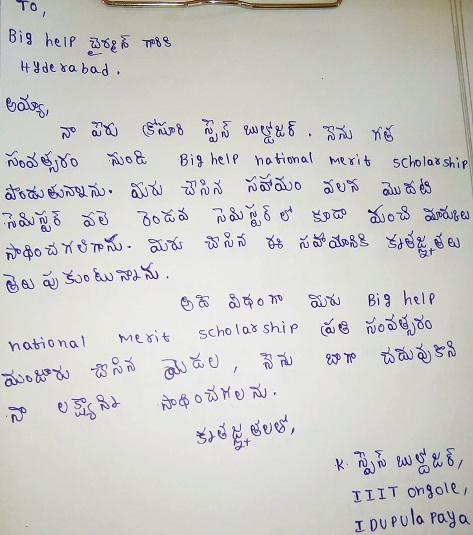 TO,
Big help చైర్మన్ గారికి
Hyderabad.
అయ్యా,
నా పేరు కోసూరి స్పైస్ బుల్డోజర్. నేను గత
సంవత్సరం నుండి Big help national merit scholarship
పొందుతున్నాను. మీరు చేసిన సహాయం వలన మొదటి
సెమిస్టర్ వలె రెండవ సెమిస్టర్ లో కూడా మంచి మార్కులు
సాధించగలిగాను. మీరు చేసిన ఈ సహాయానికి కృతజ్ఞతలు
తెలుపుకుంటున్నాను.
అదే విధంగా మీరు Big help
national merit scholarship ప్రతి సంవత్సరం
మంజూరు చేసిన యెడల, నేను బాగా చదువుకొని
నా లక్ష్యాన్ని సాధించగలను.
కృతజ్ఞతలతో,
K. స్పైస్ బుల్డోజర్,
IIIT ongole,
IDUPULAPAYA